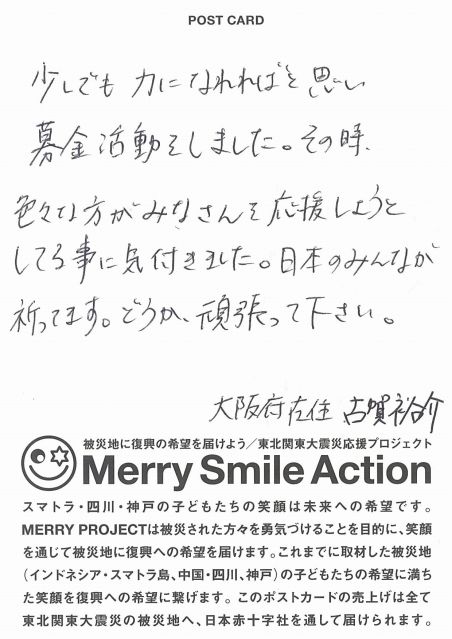 POST CARD
少しでも 力になれればと思い
募金活動をしました。その時、
色々な方がみなさんを応援しようと
してる事に気付きました。日本のみんなが
祈ってます。どうか、頑張って下さい。
大阪府在住 古賀裕介
被災地に復興の希望を届けよう/東北関東大震災応援プロジェクト
Merry Smile Action
スマトラ・四川・神戸の子どもたちの笑顔は未来への希望です。
MERRY PROJECTは被災された方々を勇気づけることを目的に、笑顔
を通じて被災地に復興への希望を届けます。これまでに取材した被災地
(インドネシア・スマトラ島、中国・四川、神戸)の子どもたちの希望に満ち
た笑顔を復興への希望に繋げます。このポストカードの売上げは全て
東北関東大震災の被災地へ、日本赤十字社を通して届けられます。